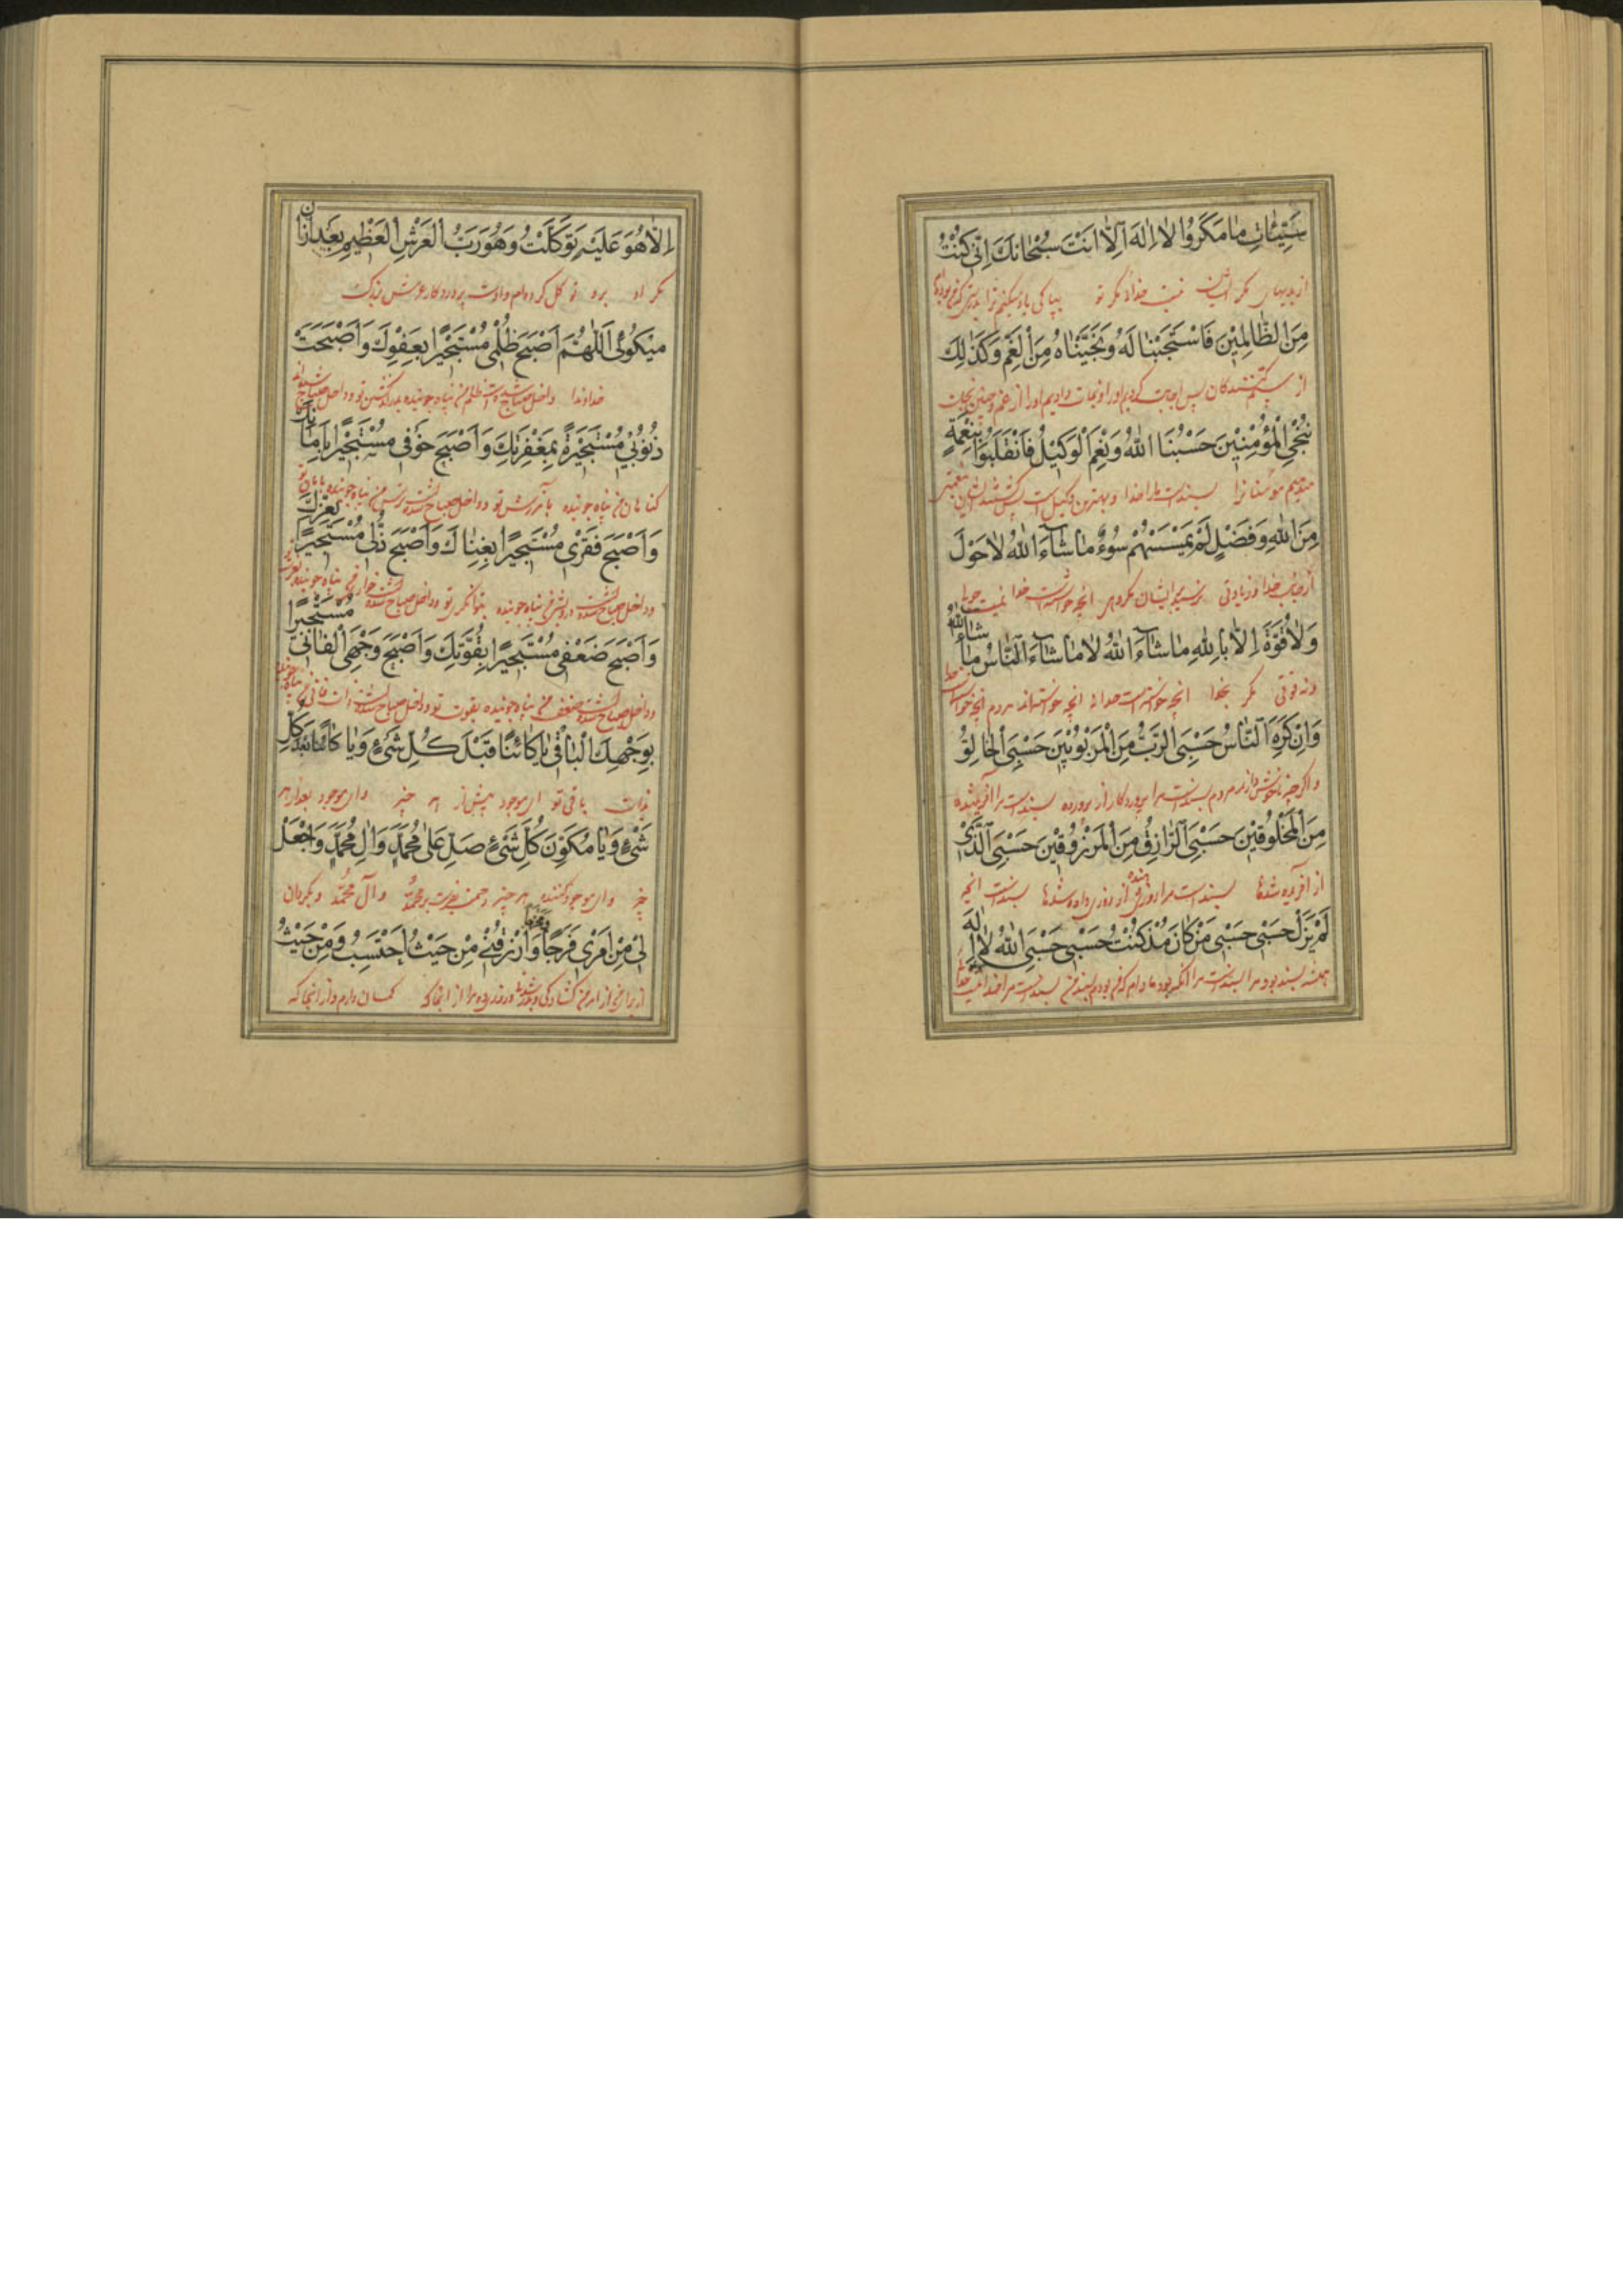 سَيِّئَاتِ مَا مَكَرُوا لَا اِلٰهَ اِلَّا اَنْتَ سُبْحَانَكَ اِنّى كُنْتُ
از بدیهای مکر ایشان نیست خدائی مگر تو بپاکی یاد میکنم ترا بدرستی که من بوده‌ام
مِنَ الظَّالِمِيْنَ فَاسْتَجَبْنَا لَهُ وَنَجَّيْنَاهُ مِنَ الْغَمِّ وَكَذٰلِكَ
از ستم کنندکان پس اجابت کردیم او را و نجات دادیم او را از غم و چنین نجات
نُنْجِى الْمُؤْمِنِيْنَ حَسْبُنَا اللهُ وَنِعْمَ الْوَكِيْلُ فَانْقَلَبُوا بِنِعْمَةٍ
میدهیم مؤمنانرا بسندست مارا خدا و بهترین وکیل است پس
مِنَ اللهِ وَفَضْلٍ لَمْ يَمْسَسْهُمْ سُوْءٌ مَا شَاءَ اللهُ لَا حَوْلَ
از جانب خدا و زیادتی نرسید ایشان مکروهی انچه خواسته است خدا نیست حولی
وَلَا قُوَّةَ اِلَّا بِاللهِ مَا شَاءَ اللهُ لَا مَا شَاءَ النَّاسُ مَا شَاءَ اللهُ
و نه قوتی مکر بخدا انچه خواسته است خدا نه انچه خواسته‌اند مردم انچه خواست خدا
وَاِنْ كَرِهَ النَّاسُ حَسْبِىَ الرَّبُّ مِنَ الْمَرْبُوْبِيْنَ حَسْبِىَ الْخَالِقُ
و اکر چه ناخوش دارند مردم بسندست مرا پروردکار از پرورده بسندست مرا آفریننده
مِنَ الْمَخْلُوقِيْنَ حَسْبِىَ الرَّازِقُ مِنَ الْمَرْزُوقِيْنَ حَسْبِىَ الَّذِىْ
از آفریده شدها بسندست مرا روزی دهنده از روزی داده شدها بسندست انکه
لَمْ يَزَلْ حَسْبِى حَسْبِى مَنْ كَانَ مُذْ كُنْتُ حَسْبِى حَسْبِىَ اللهُ لَا اِلٰهَ
همیشه بسند بود مرا بسندست مرا انکه بود مادام که من بودم بسند من بسندست مرا خدا نیست خدائی
اِلَّا هُوَ عَلَيْهِ تَوَكَّلْتُ وَهُوَ رَبُّ الْعَرْشِ الْعَظِيْمِ بعد از ان
مکر او برو توکل کرده‌ام و اوست پروردکار عرش بزرک
میکوئی اَللّٰهُمَّ اَصْبَحَ ظُلْمِى مُسْتَجِيْرًا بِعَفْوِكَ وَاَصْبَحَتْ
خداوندا داخل صباح شده است ظلم من پناه جوینده بدرکذشتن تو و داخل صباح شده‌اند
ذُنُوْبِىْ مُسْتَجِيْرَةً بِمَغْفِرَتِكَ وَاَصْبَحَ خَوْفِى مُسْتَجِيْرًا بِاَمَانِكَ
کناهان من پناه جوینده بآمرزش تو و داخل صباح شده است ترس من پناه جوینده بامان تو
وَاَصْبَحَ فَقْرِىْ مُسْتَجِيرًا بِغِنَاكَ وَاَصْبَحَ ذُلّى مُسْتَجِيرًا بِعِزِّكَ
و داخل صباح شده است درویشی من پناه جوینده بتوانکری تو و داخل صباح شده است خواری من پناه جوینده بعزت تو
وَاَصْبَحَ ضَعْفِى مُسْتَجِيرًا بِقُوَّتِكَ وَاَصْبَحَ وَجْهِىَ الْفَانِى مُسْتَجِيرًا
و داخل صباح شده است ضعف من پناه جوینده بقوت تو و داخل صباح شده است ذات فانی من پناه جوینده
بِوَجْهِكَ الْبَاقِى يَا كَائِنًا قَبْلَ كُلِّ شَىْءٍ وَيَا كَائِنًا بَعْدَ كُلِّ
بذات باقی تو ای موجود پیش از هر چیز و ای موجود بعد از هر
شَىْءٍ وَيَا مُكَوِّنَ كُلِّ شَىْءٍ صَلِّ عَلٰى مُحَمَّدٍ وَاٰلِ مُحَمَّدٍ وَاجْعَلْ
چیز و ای موجود کننده هر چیز رحمت بفرست بر محمد و آل محمد و بکردان
لِى مِنْ اَمْرِى فَرَجًا وَمَخْرَجًا وَارْزُقْنِى مِنْ حَيْثُ اَحْتَسِبُ وَمِنْ حَيْثُ
از برای من از امر من کشادکی و بدر شدن و روزی ده مرا از انجا که کمان دارم و از انجا که